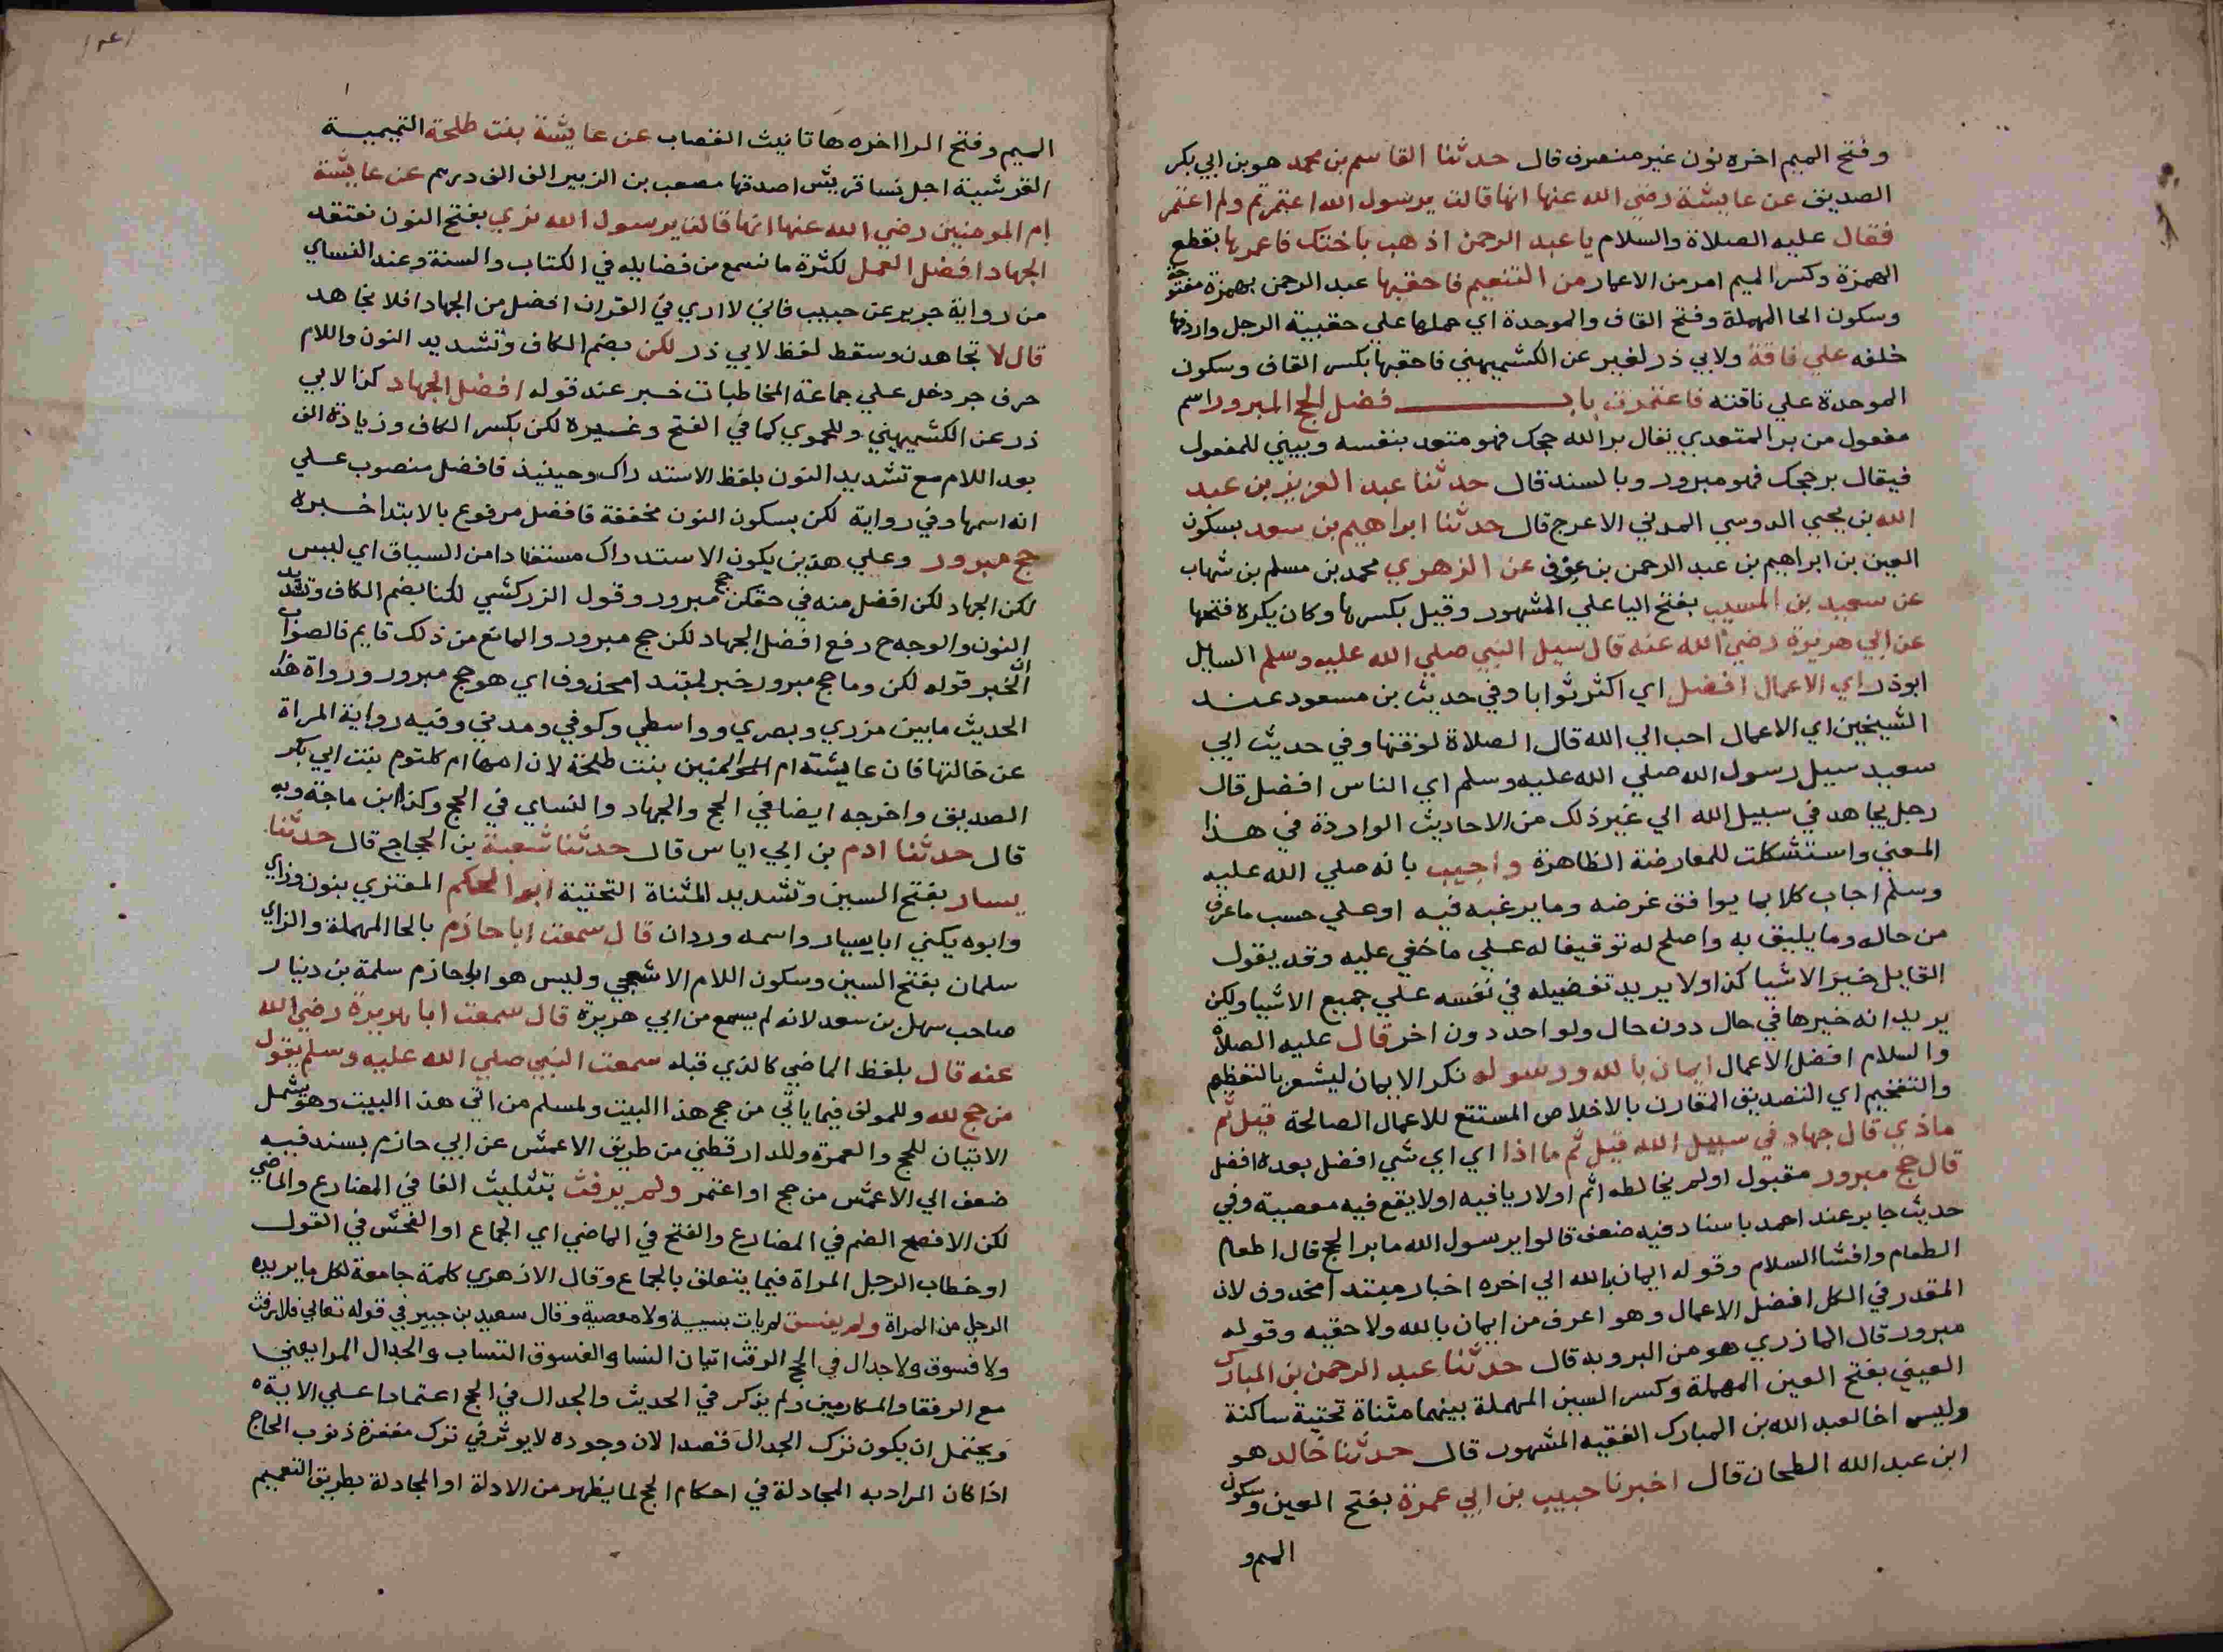 وفتح الميم اخره نون غير منصرف قال حدثنا القاسم بن محمد هو بن ابي بكر
الصديق عن عايشة رضي الله عنها انها قالت يرسول الله اعتمرتم ولم اعتمر
فقال عليه الصلاة والسلام يا عبد الرحمن اذهب باختك فاعمرها بقطع
الهمزة وكسر الميم امر من الاعمار من التنعيم فاحقبها عبد الرحمن بهمزة مفتوحة
وسكون الحا المهملة وفتح القاف والموحدة اي حملها علي حقيبة الرحل واردفها
خلفه علي ناقة ولابي ذر لغير عن الكشميهني فاحقبها بكسر القاف وسكون
الموحدة علي ناقته فاعتمرت باب فضل الحج المبرور اسم
مفعول من بر المتعدي يقال بر الله حجك فهو متعد بنفسه ويبني للمفعول
فيقال بر حجك فهو مبرور وبالسند قال حدثنا عبد العزيز بن عبد
الله بن يحيي الدوسي المدني الاعرج قال حدثنا ابراهيم بن سعد بسكون
العين بن ابراهيم بن عبد الرحمن بن عوف عن الزهري محمد بن مسلم بن شهاب
عن سعيد بن المسيب بفتح اليا علي المشهور وقيل بكسرها وكان يكره فتحها
عن ابي هريرة رضي الله عنه قال سيل النبي صلي الله عليه وسلم السايل
ابوذر اي الاعمال افضل اي اكثر ثوابا وفي حديث بن مسعود عند
الشيخين اي الاعمال احب الي الله قال الصلاة لوقتها وفي حديث ابي
سعيد سيل رسول الله صلي الله عليه وسلم اي الناس افضل قال
رجل يجاهد في سبيل الله الي غير ذلك من الاحاديث الواردة في هذا
المعني واستشكلت للمعارضة الظاهرة واجيب بانه صلي الله عليه
وسلم اجاب كلا بما يوافق غرضه وما يرغبه فيه او علي حسب ما عرف
من حاله وما يليق به واصلح له توقيفا له علي ما خفي عليه وقد يقول
القايل خير الاشيا كذا ولا يريد تفضيله في نفسه علي جميع الاشيا ولكن
يريد انه خيرها في حال دون حال ولواحد دون اخر قال عليه الصلاة
والسلام افضل الاعمال ايمان بالله ورسوله نكر الايمان ليشعر بالتعظيم
والتفخيم اي التصديق المقارن بالاخلاص المستتع للاعمال الصالحة قيل ثم
ماذي قال جهاد في سبيل الله قيل ثم ماذا اي اي شي افضل بعده افضل
قال حج مبرور مقبول اولم يخالطه اثم اولا ريا فيه اولا يقع فيه معصية وفي
حديث جابر عند احمد باسناد فيه ضعف قالوا يرسول الله ما بر الحج قال اطعام
الطعام وافشا السلام وقوله ايمان بالله الي اخره اخبار مبتدا محذوف لان
المقدر في الكل افضل الاعمال وهو اعرف من ايمان بالله ولاحقيه وقوله
مبرور قال المازري هو من البر وبه قال حدثنا عبد الرحمن بن المبارك
العيشي بفتح العين المهملة وكسر السين المهملة بينهما مثناة تحتية ساكنة
وليس اخا لعبد الله بن المبارك الفقيه المشهور قال حدثنا خالد هو
ابن عبد الله الطحان قال اخبرنا حبيب بن ابي عمرة بفتح العين وسكون
الميم و
الميم وفتح الرا اخره ها تانيث القصاب عن عايشة بنت طلحة التيمية
القرشية اجل نسا قريش اصدقها مصعب بن الزبير الف الف درهم عن عايشة
ام المومنين رضي الله عنها انها قالت يرسول الله نري بفتح النون نعتقد
الجهاد افضل العمل لكثرة ما نسمع من فضايله في الكتاب والسنة وعند النساي
من رواية جرير عن حبيب فاني لا اري في القران افضل من الجهاد افلا نجاهد
قال لا تجاهدن وسقط لفظ لابي ذر لكن بضم الكاف وتشديد النون واللام
حرف جر دخل علي جماعة المخاطبات خبر عند قوله افضل الجهاد كذا لابي
ذر عن الكشميهني وللحموي كما في الفتح وغيره لكن بكسر الكاف وزيادة الف
بعد اللام مع تشديد النون بلفظ الاستدراك وحينيذ فافضل منصوب علي
انه اسمها وفي رواية لكن بسكون النون مخففة فافضل مرفوع بالابتدا خبره
حج مبرور وعلي هذين يكون الاستدراك مستفادا من السياق اي ليس
لكن الجهاد لكن افضل منه في حقكن حج مبرور وقول الزركشي لكنا بضم الكاف وتشديد
النون والوجه ح رفع افضل الجهاد لكن حج مبرور والمانع من ذلك قايم فالصواب
ان الخبر قوله لكن وما حج مبرور خبر لمبتدا محذوف اي هو حج مبرور ورواة هذا
الحديث ما بين مزدي وبصري وواسطي وكوفي ومدني وفيه رواية المراة
عن خالتها فان عايشة ام المومنين بنت طلحة لان امها ام كلثوم بنت ابي بكر
الصديق واخرجه ايضا في الحج والجهاد والنساي في الحج وكذا ابن ماجة وبه
قال حدثنا ادم بن ابي اياس قال حدثنا شعبة بن الحجاج قال حدثنا
يسار بفتح السين وتشديد المثناة التحتية ابو الحكم المعنزي بنون وزاي
وابوه يكني ابا يسار واسمه وردان قال سمعت ابا حازم بالحا المهملة والزاي
سلمان بفتح السين وسكون اللام الاشجعي وليس هو ابو حازم سلمة بن دينار
صاحب سهل بن سعد لانه لم يسمع من ابي هريرة قال سمعت ابا هريرة رضي الله
عنه قال بلفظ الماضي كالذي قبله سمعت النبي صلي الله عليه وسلم يقول
من حج لله وللمولف فيما ياتي من حج هذا البيت ولمسلم من اتي هذا البيت وهو يشمل
الاتيان للحج والعمرة وللدارقطني من طريق الاعمش عن ابي حازم بسند فيه
ضعف الي الاعمش من حج او اعتمر ولم يرفث بتثليث الفا في المضارع والماضي
لكن الافصح الضم في المضارع والفتح في الماضي اي الجماع او الفحش في القول
او خطاب الرجل المراة فيما يتعلق بالجماع وقال الازهري كلمة جامعة لكل ما يريده
الرجل من المراة ولم يفسق لم يات بسيية ولا معصية وقال سعيد بن جبير في قوله تعالي فلا رفث
ولا فسوق ولا جدال في الحج الرفث اتيان النسا والفسوق التساب والجدال المرا يعني
مع الرفقا والمكاريين ولم يذكر في الحديث والجدال في الحج اعتمادا علي الاية
ويحتمل ان يكون ترك الجدال قصدا لان وجوده لا يوثر في ترك مغفرة ذنوب الحاج
اذا كان المراد به المجادلة في احكام الحج لما يظهر من الادلة او المجادلة بطريق التعميم